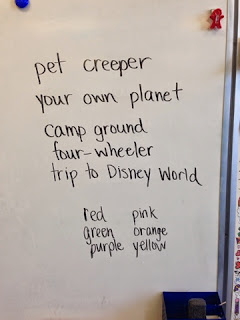 pet creeper
your own planet
camp ground
four-wheeler
trip to Disney World
red pink
green orange
purple yellow